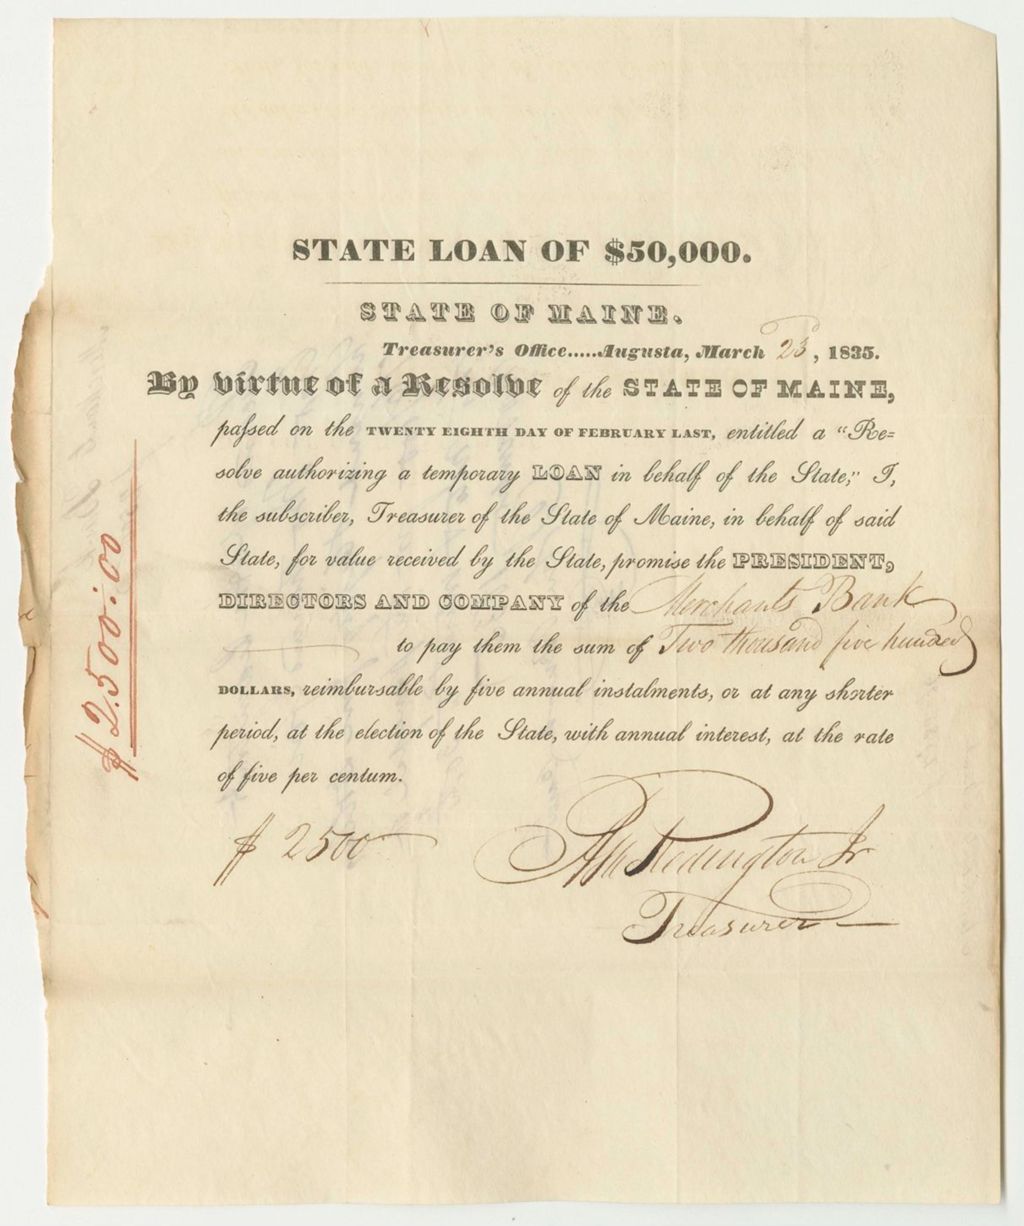 STATE LOAN OF $50,000.
STATE OF MAINE.
Treasurer's Office.....Augusta, March 23, 1835.
By virtue of a Resolve of the STATE OF MAINE,
passed on the TWENTY EIGHTH DAY OF FEBRUARY LAST, entitled a “Re=
solve authorizing a temporary LOAN in behalf of the State;” I,
the subscriber, Treasurer of the State of Maine, in behalf of said
State, for value received by the State, promise the PRESIDENT,
DIRECTORS AND COMPANY of the Merchants Bank
to pay them the sum of Two thousand five hundred
DOLLARS, reimbursable by five annual instalments, or at any shorter
period, at the election of the State, with annual interest, at the rate
of five per centum.
$ 2500
Asa Redington Jr
Treasurer
$ 2500.00